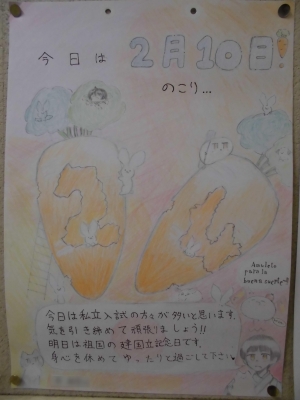 今日は 2月10日!
のこり...
24
Amuleto
para la
buena
今日は私立入試の方々が多いと思います。
気を引き締めて頑張りましょう!!
明日は祖国の建国立記念日です。
身心を休めてゆったりと過ごして下さい。